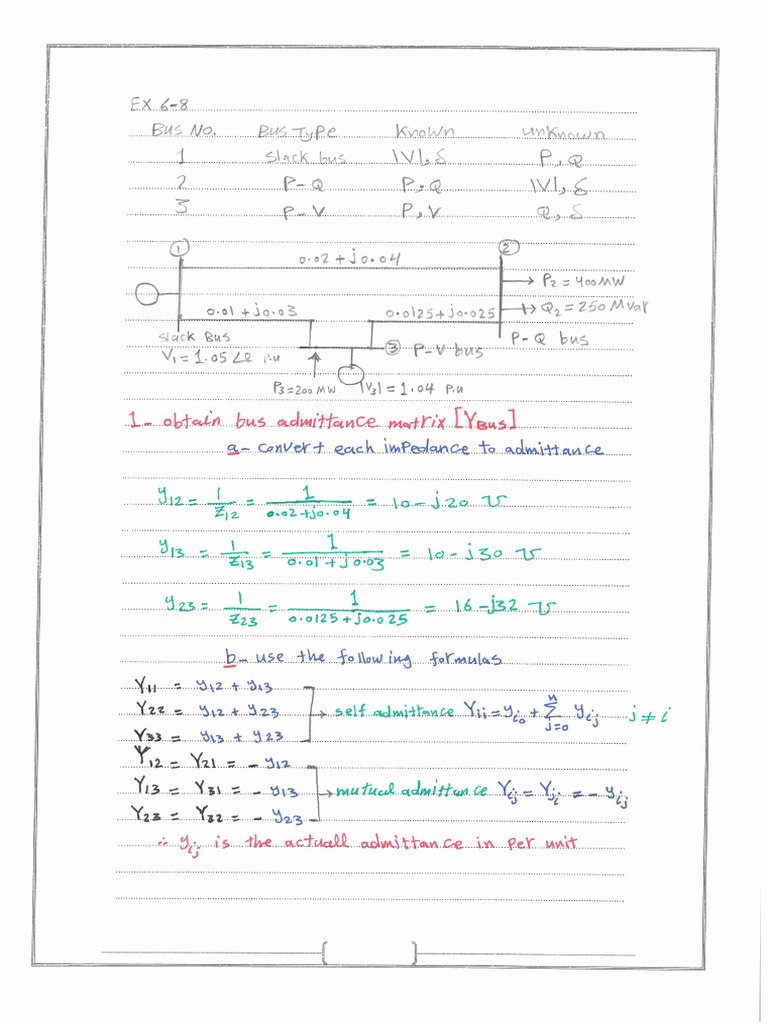 EX 6-8
Bus No. Bus Type Known unknown
1 slack bus |V|, δ P, Q
2 P-Q P, Q |V|, δ
3 P-V P, V Q, δ
① ②
0.02 + j0.04
P2 = 400 MW
0.01 + j0.03 0.0125 + j0.025 Q2 = 250 Mvar
slack Bus ③ P-V bus P-Q bus
V1 = 1.05 ∠0 P.u
P3 = 200 MW |V3| = 1.04 P.u
1- obtain bus admittance matrix [YBus]
a- convert each impedance to admittance
y12 = 1/Z12 = 1/(0.02 + j0.04) = 10 - j20 ℧
y13 = 1/Z13 = 1/(0.01 + j0.03) = 10 - j30 ℧
y23 = 1/Z23 = 1/(0.0125 + j0.025) = 16 - j32 ℧
b- use the following formulas
Y11 = y12 + y13
Y22 = y12 + y23 → self admittance Yii = yi0 + Σ(j=0 to n) yij j ≠ i
Y33 = y13 + y23
Y12 = Y21 = - y12
Y13 = Y31 = - y13 → mutual admittance Yij = Yji = - yij
Y23 = Y32 = - y23
∴ yij is the actuall admittance in per unit